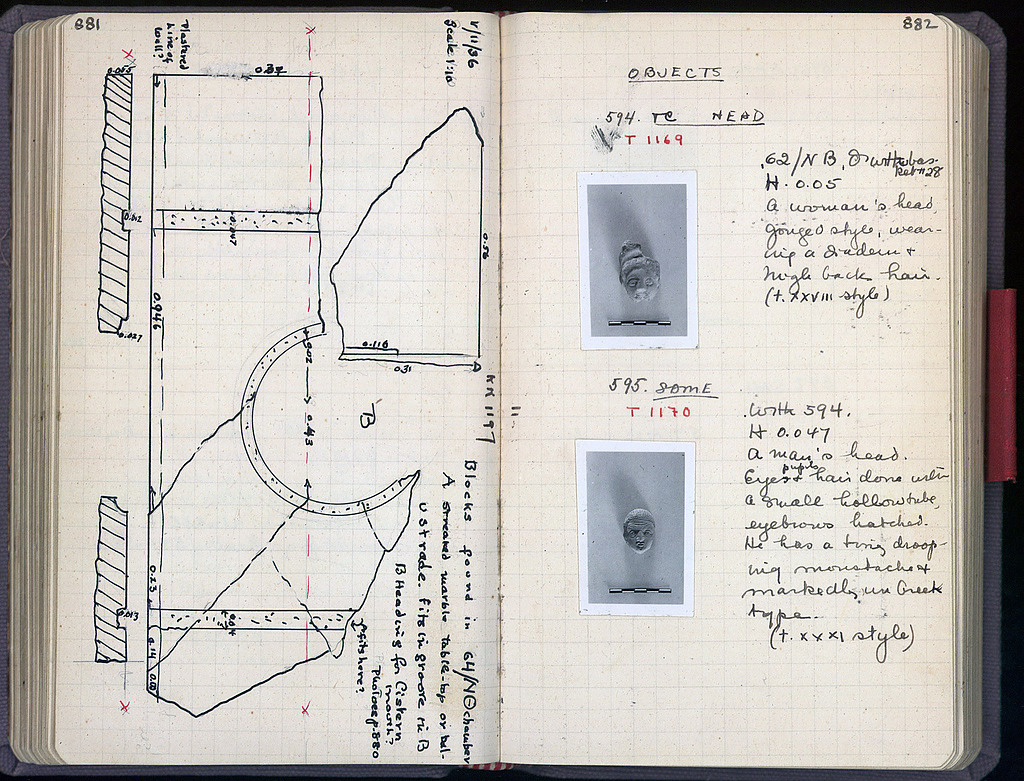 881
V/11/36
Scale 1:10
Plastered
Line of
Wall?
0.37
0.055
0.012
0.047
0.027
0.946
0.56
0.116
0.31
KK 1197
0.02
0.43
B
0.23
0.013
0.04
0.14
Fits here?
Blocks found in 64/ΝΘ chamber
A streaked marble table-top or bal-
ustrade. fits in groove in B
B Heading for Cistern
mouth?
Photo see p. 880
882
OBJECTS
594. TC HEAD
T 1169
.62/NB,
H. 0.05
A woman's head,
gouged style, wear-
ing a diadem &
high back hair.
(t. XXVIII style)
595. SOME
T 1170
.With 594.
H 0.047
A man's head.
Eyes & pupils hair done with
a small hollow tube,
eyebrows hatched.
He has a tiny droop-
ing moustache &
markedly un Greek
type.
(t. XXXI style)